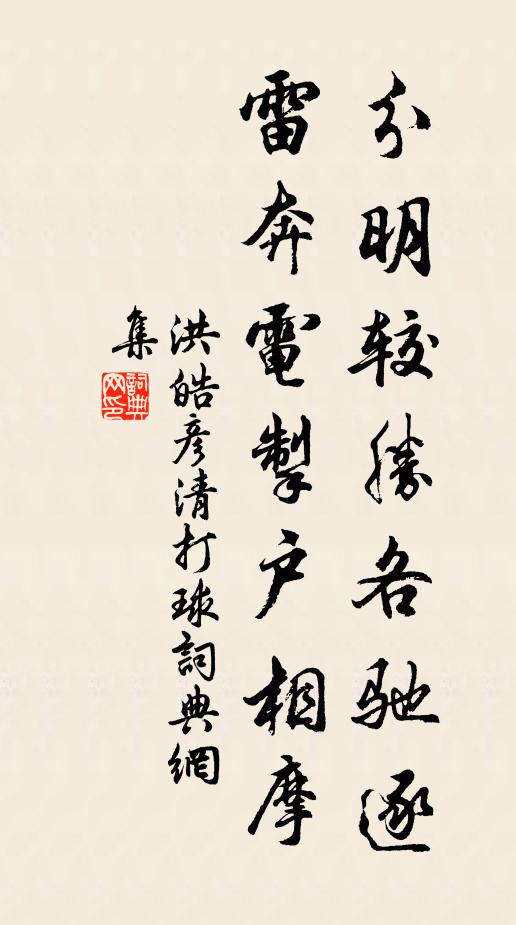 分明較勝各馳逐
雷奔電掣户相摩
洪皓彦清打球詞典網
集
詞典網印